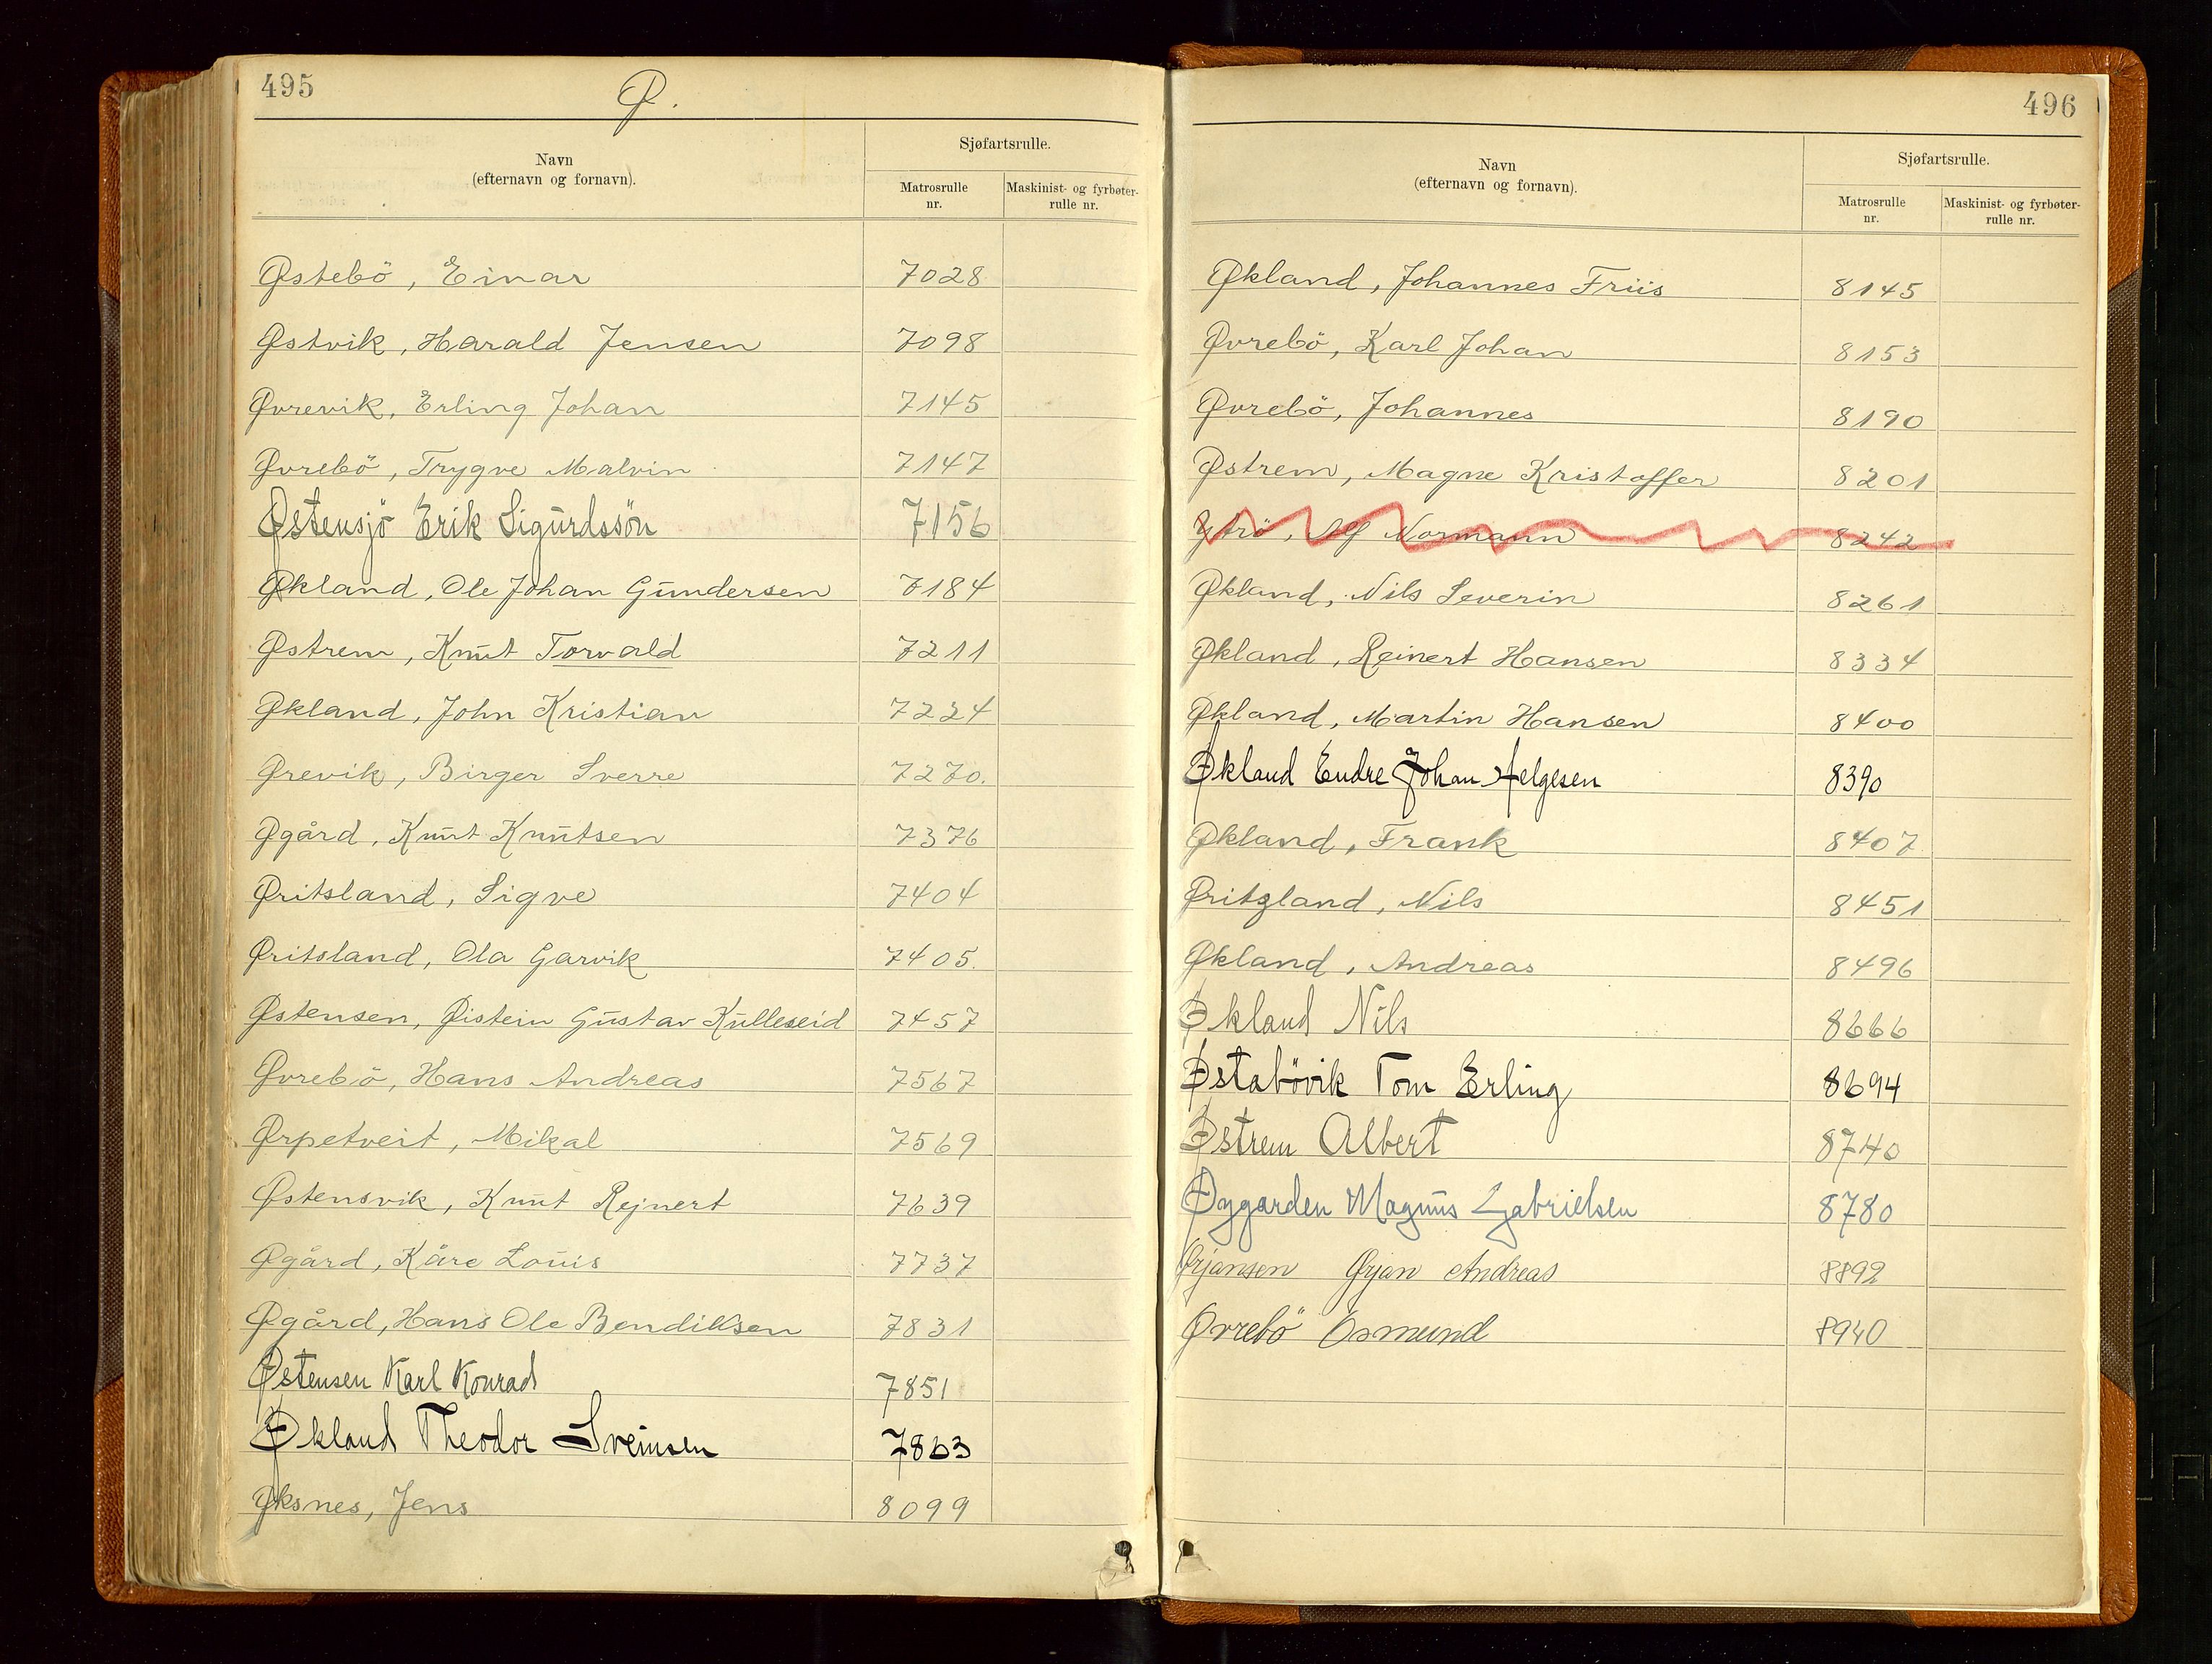 495
Ø.
Navn
(efternavn og fornavn).
Sjøfartsrulle.
Matrosrulle
nr.
Maskinist- og fyrbøter-
rulle nr.
Østebö, Einar 7028
Østvik, Harald Jensen 7098
Øvrevik, Erling Johan 7145
Øvrebö, Trygve Malvin 7147
Østensjö Erik Sigurdssön 7156
Økland, Ole Johan Gundersen 7184
Østrem, Knut Torvald 7211
Økland, John Kristian 7224
Ørevik, Birger Sverre 7270.
Øgård, Knut Knutsen 7376
Øritsland, Sigve 7404
Øritsland, Ola Garvik 7405.
Østensen, Øistein Gustav Kulleseid 7457
Øvrebö, Hans Andreas 7567
Ørpetveit, Mikal 7569
Østensvik, Knut Rejnert 7639
Øgård, Kåre Louis 7737
Øgård, Hans Ole Bendiksen 7831
Østensen Karl Konrad 7851
Økland Theodor Sveinsen 7863
Øksnes, Jens 8099
496
Navn
(efternavn og fornavn).
Sjøfartsrulle.
Matrosrulle
nr.
Maskinist- og fyrbøter-
rulle nr.
Økland, Johannes Friis 8145
Øvrebö, Karl Johan 8153
Øvrebö, Johannes 8190
Østrem, Magne Kristoffer 8201
Ytrö, Alf Normann 8242
Økland, Nils Severin 8261
Økland, Reinert Hansen 8334
Økland, Martin Hansen 8400
Økland Endre Johan Helgesen 8390
Økland, Frank 8407
Øritzland, Nils 8451
Økland, Andreas 8496
Økland Nils 8666
Østabövik Tom Erling 8694
Østrem Albert 8740
Øygarden Magnus Gabrielsen 8780
Ørjansen Ørjan Andreas 8892
Øvrebö Osmund 8940